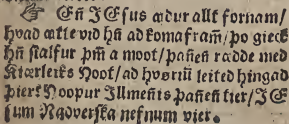 ☞ Eñ JEsus ꜳdur allt fornam/
hvad ætle vid hñ ad koma fram/ þo gieck
hñ sialfur þm a moot/ þañeñ rædde med
Kiærleiks Hoot/ ad hvøriū leited hingad
þier? Hoopur Illmeñis þañeñ tier/ JE
sum Naðverska nefnum vier.